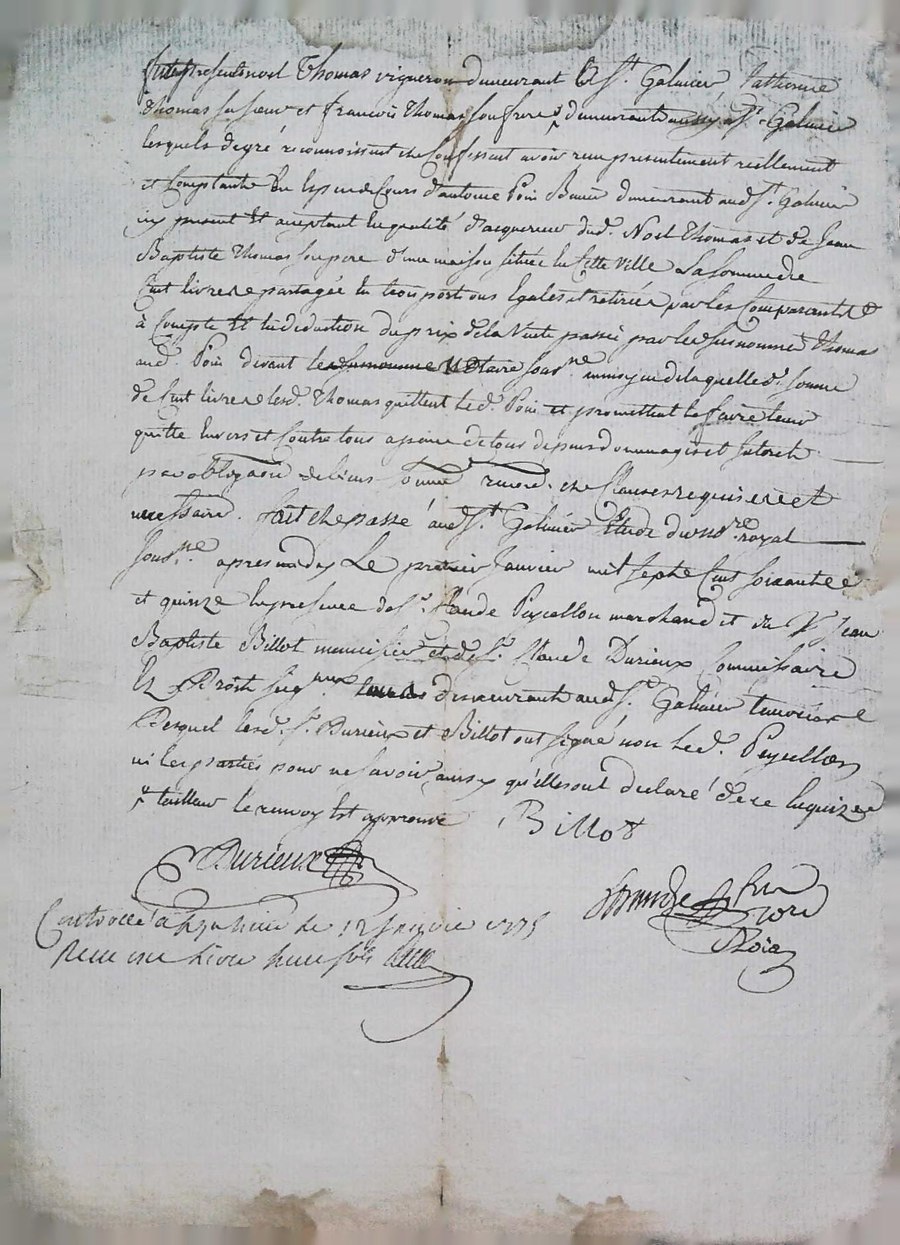 Furent presents noel Thomas vigneron demeurant à St. Galmier, Catherine
Thomas sa soeur et françois Thomas son frere demeurants aussy à St. Galmier
lesquels de gré reconnoissent et Confessent avoir reçu presentement reellement
et Comptant En Especes de Cours d'antoine Poin demeurant aud. St. Galmier
icy present Et aceptant En qualité d'acquereur dud. Noel Thomas et de Jean
Baptiste Thomas son pere d'une maison située En Cette Ville La Somme de
Cent livres partagée En trois portions Egales et retirées par les Comparants
à Compte Et En deduction du prix de la Vente passée par les susnommés Thomas
aud. Poin devant le Notaire sous.né moyennant laquelle d. somme
de Cent livres lesd. Thomas quittent led. Poin et promettent le faire tenir
quitte Envers et Contre tous a peine de tous depens dommages et Interets
par obligaon de biens soumi renond. et Clauses requises et
necessaires. fait et passé aud. St. Galmier Etude du nore. royal
sous.né apres midy Le premier Janvier mil sept Cent soixante
et quinze En presence de Sr. Claude Peycellon marchand et du Sr. Jean
Baptiste Billot menuisier et de Sr. Claude Durieux Commissaire
En Droits seig.aux demeurants aud. St. Galmier temoins
Desquels lesd. Srs. Durieux et Billot ont signé non led. Peycellon
ni les parties pour ne savoir ainsy qu'elles ont declaré de ce Enquises
tailleur le renvoy Est approuvé Billot
Durieux
Controllé à St. Galmier le 12 janvier 1775
Reçu une livre sols